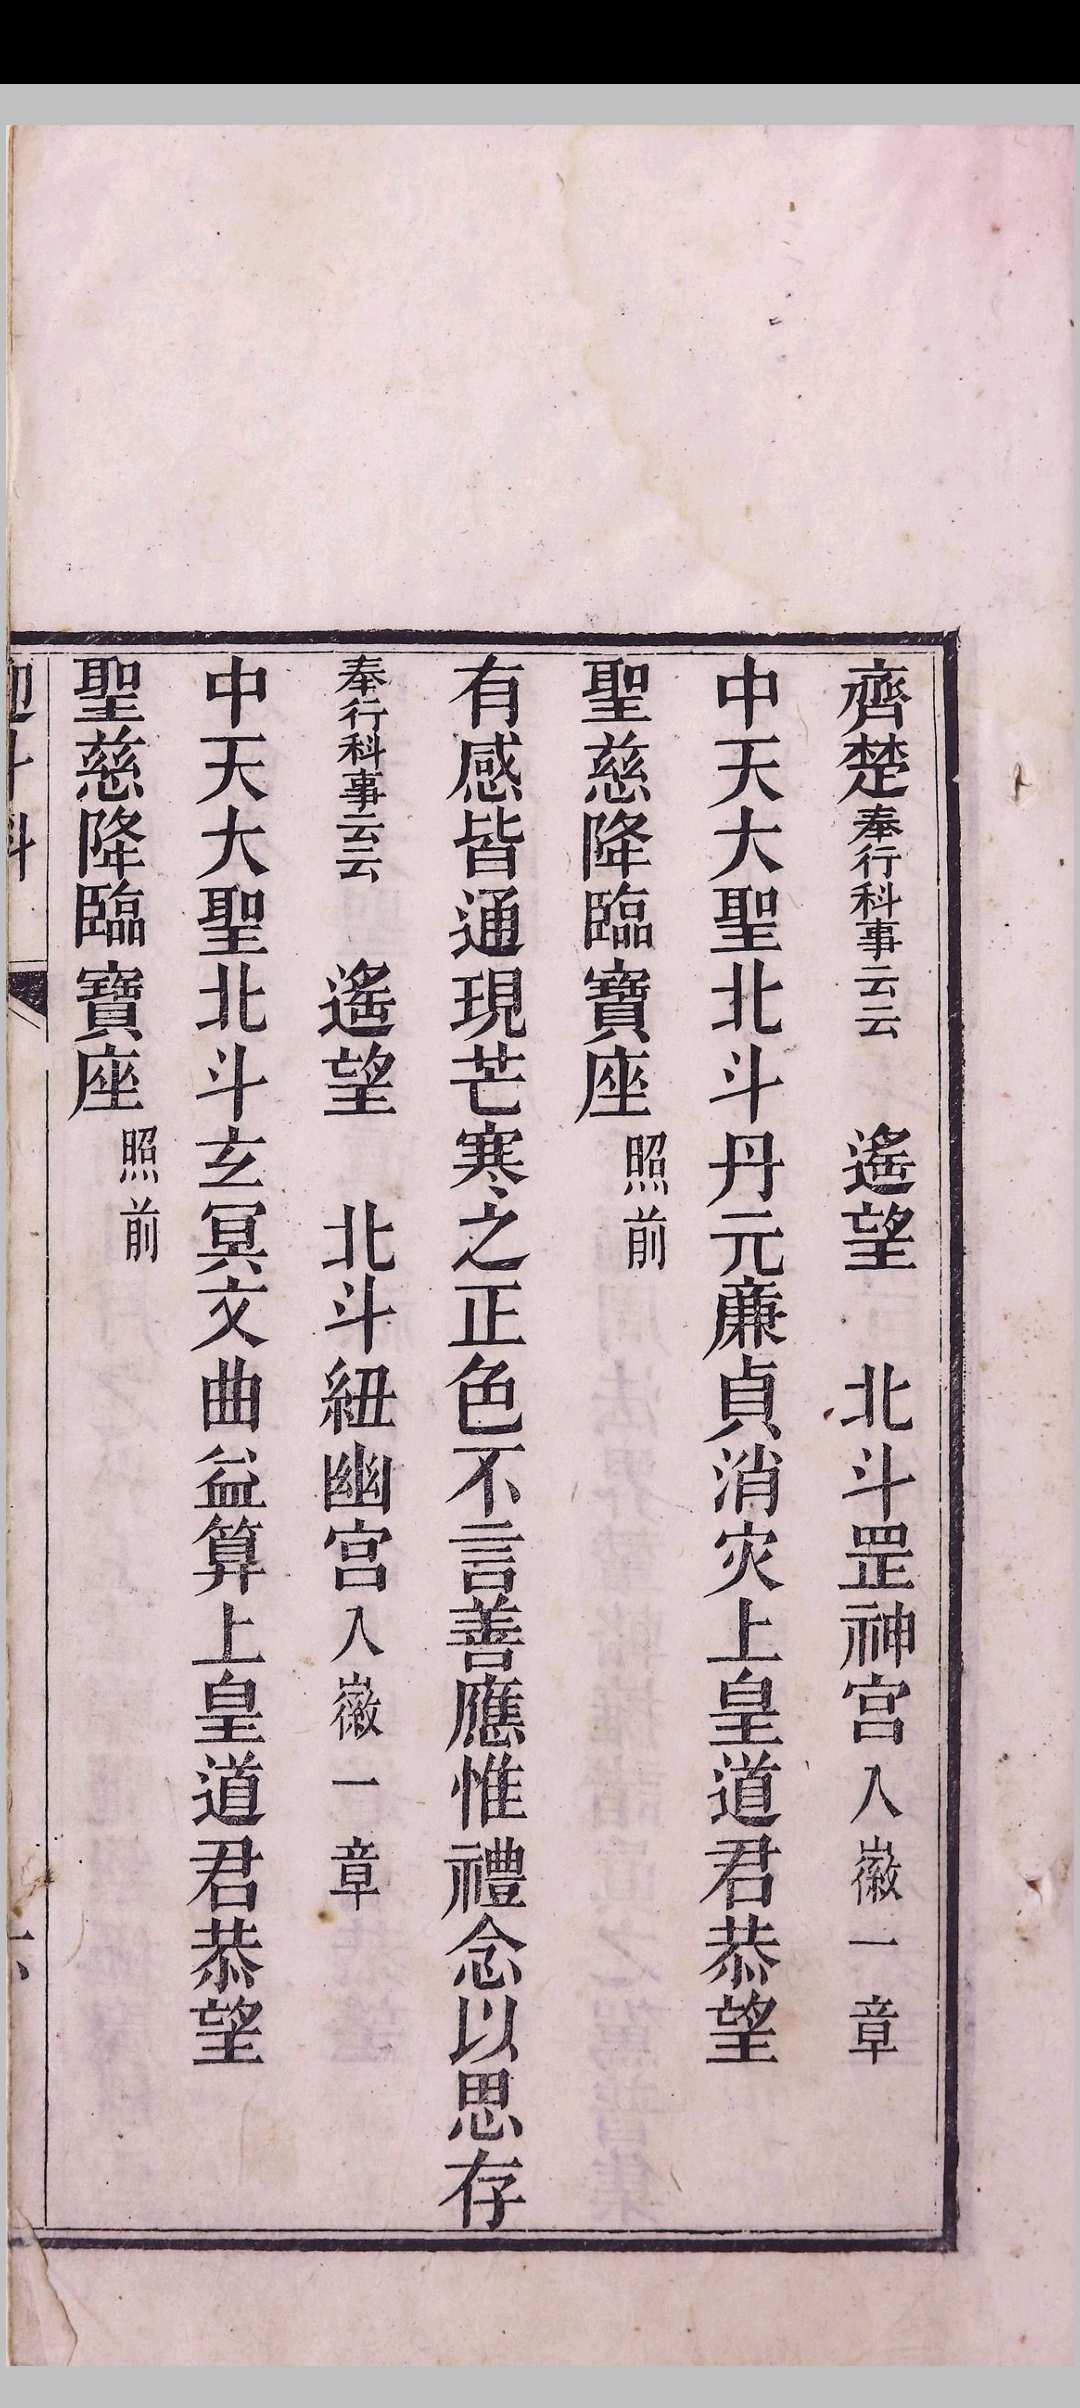 齊楚奉行科事云云　遙望　北斗罡神宮入徽一章
中天大聖北斗丹元廉貞消灾上皇道君恭望
聖慈降臨寶座照前
有感皆通現芒寒之正色不言善應惟禮念以思存
奉行科事云云　遙望　北斗紐幽宮入徽一章
中天大聖北斗玄冥文曲益算上皇道君恭望
聖慈降臨寶座照前